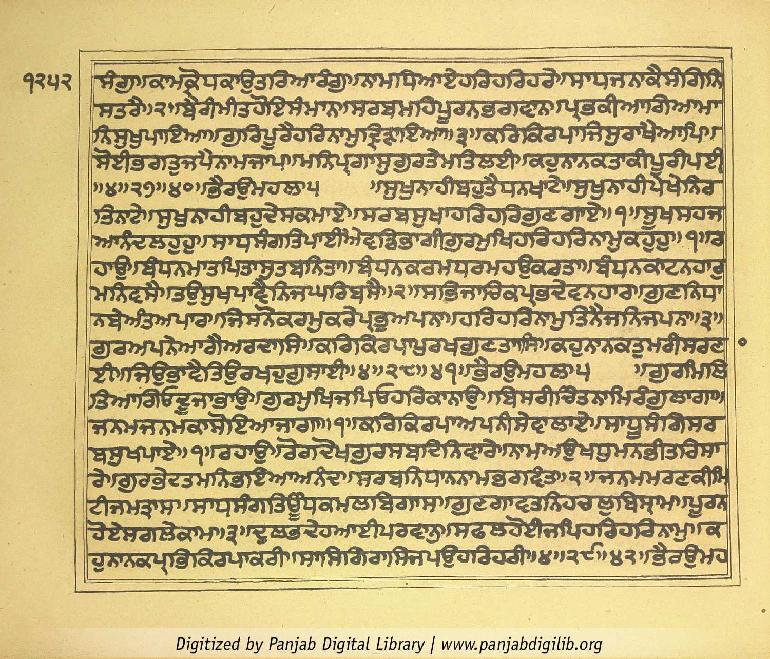 ੧੨੫੨
ਸੰਗੁ॥ਕਾਮਕ੍ਰੋਧਕਾਉਤਰਿਆਰੰਗੁ॥ਨਾਮਧਿਆਏਹਰਿਹਰਿਹਰੇ॥ਸਾਧਜਨਾਕੈਸੰਗਿਨਿ
ਸਤਰੇ॥੨॥ਬੈਰੀਮੀਤਹੋਏਸੰਮਾਨ॥ਸਰਬਮਹਿਪੂਰਨਭਗਵਾਨ॥ਪ੍ਰਭਕੀਆਗਿਆਮਾ
ਨਿਸੁਖੁਪਾਇਆ॥ਗੁਰਿਪੂਰੈਹਰਿਨਾਮੁਦ੍ਰਿੜਾਇਆ॥੩॥ਕਰਿਕਿਰਪਾਜਿਸੁਰਾਖੈਆਪਿ॥
ਸੋਈਭਗਤੁਜਪੈਨਾਮਜਾਪ॥ਮਨਿਪ੍ਰਗਾਸੁਗੁਰਤੇਮਤਿਲਈ॥ਕਹੁਨਾਨਕਤਾਕੀਪੂਰੀਪਈ
॥੪॥੨੭॥੪੦॥ਭੈਰਉਮਹਲਾ੫ ॥ਸੁਖੁਨਾਹੀਬਹੁਤੈਧਨਖਾਟੇ॥ਸੁਖੁਨਾਹੀਪੇਖੇਨਿਰ
ਤਿਨਾਟੇ॥ਸੁਖੁਨਾਹੀਬਹੁਦੇਸਕਮਾਏ॥ਸਰਬਸੁਖਾਹਰਿਹਰਿਗੁਣਗਾਏ॥੧॥ਸੂਖਸਹਜ
ਆਨੰਦਲਹਹੁ॥ਸਾਧਸੰਗਤਿਪਾਈਐਵਡਭਾਗੀਗੁਰਮੁਖਿਹਰਿਹਰਿਨਾਮੁਕਹਹੁ॥੧॥ਰ
ਹਾਉ॥ਬੰਧਨਮਾਤਪਿਤਾਸੁਤਬਨਿਤਾ॥ਬੰਧਨਕਰਮਧਰਮਹਉਕਰਤਾ॥ਬੰਧਨਕਾਟਨਹਾਰੁ
ਮਨਿਵਸੈ॥ਤਉਸੁਖੁਪਾਵੈਨਿਜਘਰਿਬਸੈ॥੨॥ਸਭਿਜਾਚਿਕਪ੍ਰਭਦੇਵਨਹਾਰ॥ਗੁਣਨਿਧਾ
ਨਬੇਅੰਤਅਪਾਰ॥ਜਿਸਨੋਕਰਮੁਕਰੇਪ੍ਰਭੁਅਪਨਾ॥ਹਰਿਹਰਿਨਾਮੁਤਿਨੈਜਨਿਜਪਨਾ॥੩॥
ਗੁਰਅਪਨੇਆਗੈਅਰਦਾਸਿ॥ਕਰਿਕਿਰਪਾਪੁਰਖਗੁਣਤਾਸਿ॥ਕਹੁਨਾਨਕਤੁਮਰੀਸਰਣ
ਈ॥ਜਿਉਭਾਵੈਤਿਉਰਖਹੁਗੁਸਾਈ॥੪॥੨੮॥੪੧॥ਭੈਰਉਮਹਲਾ੫ ॥ਗੁਰਮਿਲਿ
ਤਿਆਗਿਓਦੂਜਾਭਾਉ॥ਗੁਰਮੁਖਿਜਪਿਓਹਰਿਕਾਨਾਉ॥ਬਿਸਰੀਚਿੰਤਨਾਮਿਰੰਗੁਲਾਗਾ॥
ਜਨਮਜਨਮਕਾਸੋਇਆਜਾਗਾ॥੧॥ਕਰਿਕਿਰਪਾਅਪਨੀਸੇਵਾਲਾਏ॥ਸਾਧੂਸੰਗਿਸਰ
ਬਸੁਖਪਾਏ॥੧॥ਰਹਾਉ॥ਰੋਗਦੋਖਗੁਰਸਬਦਿਨਿਵਾਰੇ॥ਨਾਮਅਉਖਧੁਮਨਭੀਤਰਿਸਾ
ਰੇ॥ਗੁਰਭੇਟਤਮਨਿਭਇਆਅਨੰਦ॥ਸਰਬਨਿਧਾਨਨਾਮਭਗਵੰਤ॥੨॥ਜਨਮਮਰਣਕੀਮਿ
ਟੀਜਮਤ੍ਰਾਸ॥ਸਾਧਸੰਗਤਿਊਂਧਕਮਲਬਿਗਾਸ॥ਗੁਣਗਾਵਤਨਿਹਚਲੁਬਿਸ੍ਰਾਮ॥ਪੂਰਨ
ਹੋਏਸਗਲੇਕਾਮ॥੩॥ਦੁਲਭਦੇਹਆਈਪਰਵਾਨੁ॥ਸਫਲਹੋਈਜਪਿਹਰਿਹਰਿਨਾਮੁ॥ਕ
ਹੁਨਾਨਕਪ੍ਰਭਿਕਿਰਪਾਕਰੀ॥ਸਾਸਿਗਿਰਾਸਿਜਪਉਹਰਿਹਰੀ॥੪॥੨੯॥੪੨॥ਭੈਰਉਮਹ
Digitized by Panjab Digital Library | www.panjabdigilib.org